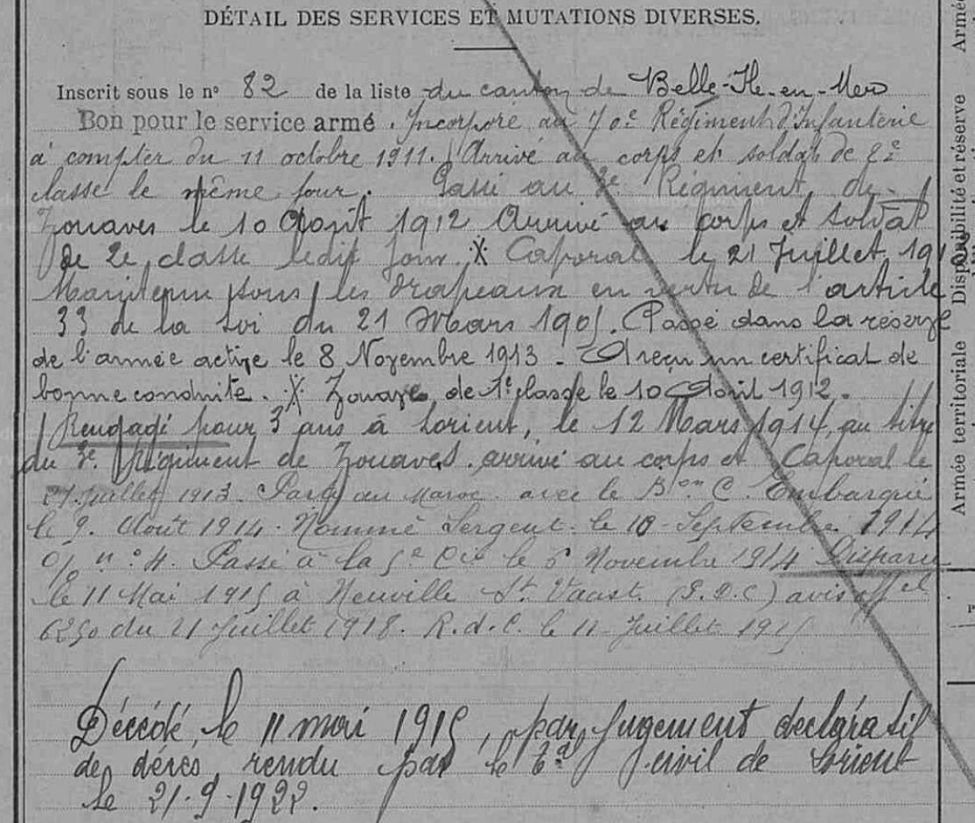 DÉTAIL DES SERVICES ET MUTATIONS DIVERSES.
Inscrit sous le n° 82 de la liste du canton de Belle-Ile-en-Mer
Bon pour le service armé. Incorporé au 70e Régiment d'Infanterie
à compter du 11 octobre 1911. Arrivé au corps et soldat de 2e
classe le même jour. Passé au 3e Régiment de
Zouaves le 10 Août 1912 Arrivé au corps et soldat
de 2e classe ledit jour. X Caporal le 21 Juillet 1913
Maintenu sous les drapeaux en vertu de l'article
33 de la Loi du 21 Mars 1905. Passé dans la réserve
de l'armée active le 8 Novembre 1913 - A reçu un certificat de
bonne conduite. X Zouave de 1e classe le 10 Avril 1912.
Rengagé pour 3 ans à Lorient, le 12 Mars 1914, au titre
du 3e Régiment de Zouaves. arrivé au corps et Caporal le
21 Juillet 1913. au Maroc avec le Bon C. Embarqué
le 9 Août 1914. Nommé Sergent le 10 Septembre 1914
n° 4. Passé à la 5e Cie le 6 Novembre 1914 Disparu
le 11 Mai 1915 à Neuville St Vaast. avis offel
6250 du 21 Juillet R.d.C. le 11 Juillet 1915
Décédé le 11 mai 1915, par jugement déclaratif
de décès, rendu par le Bal civil de Lorient
le 21-9-1922.
Armée territoriale
Disponibilité et réserve